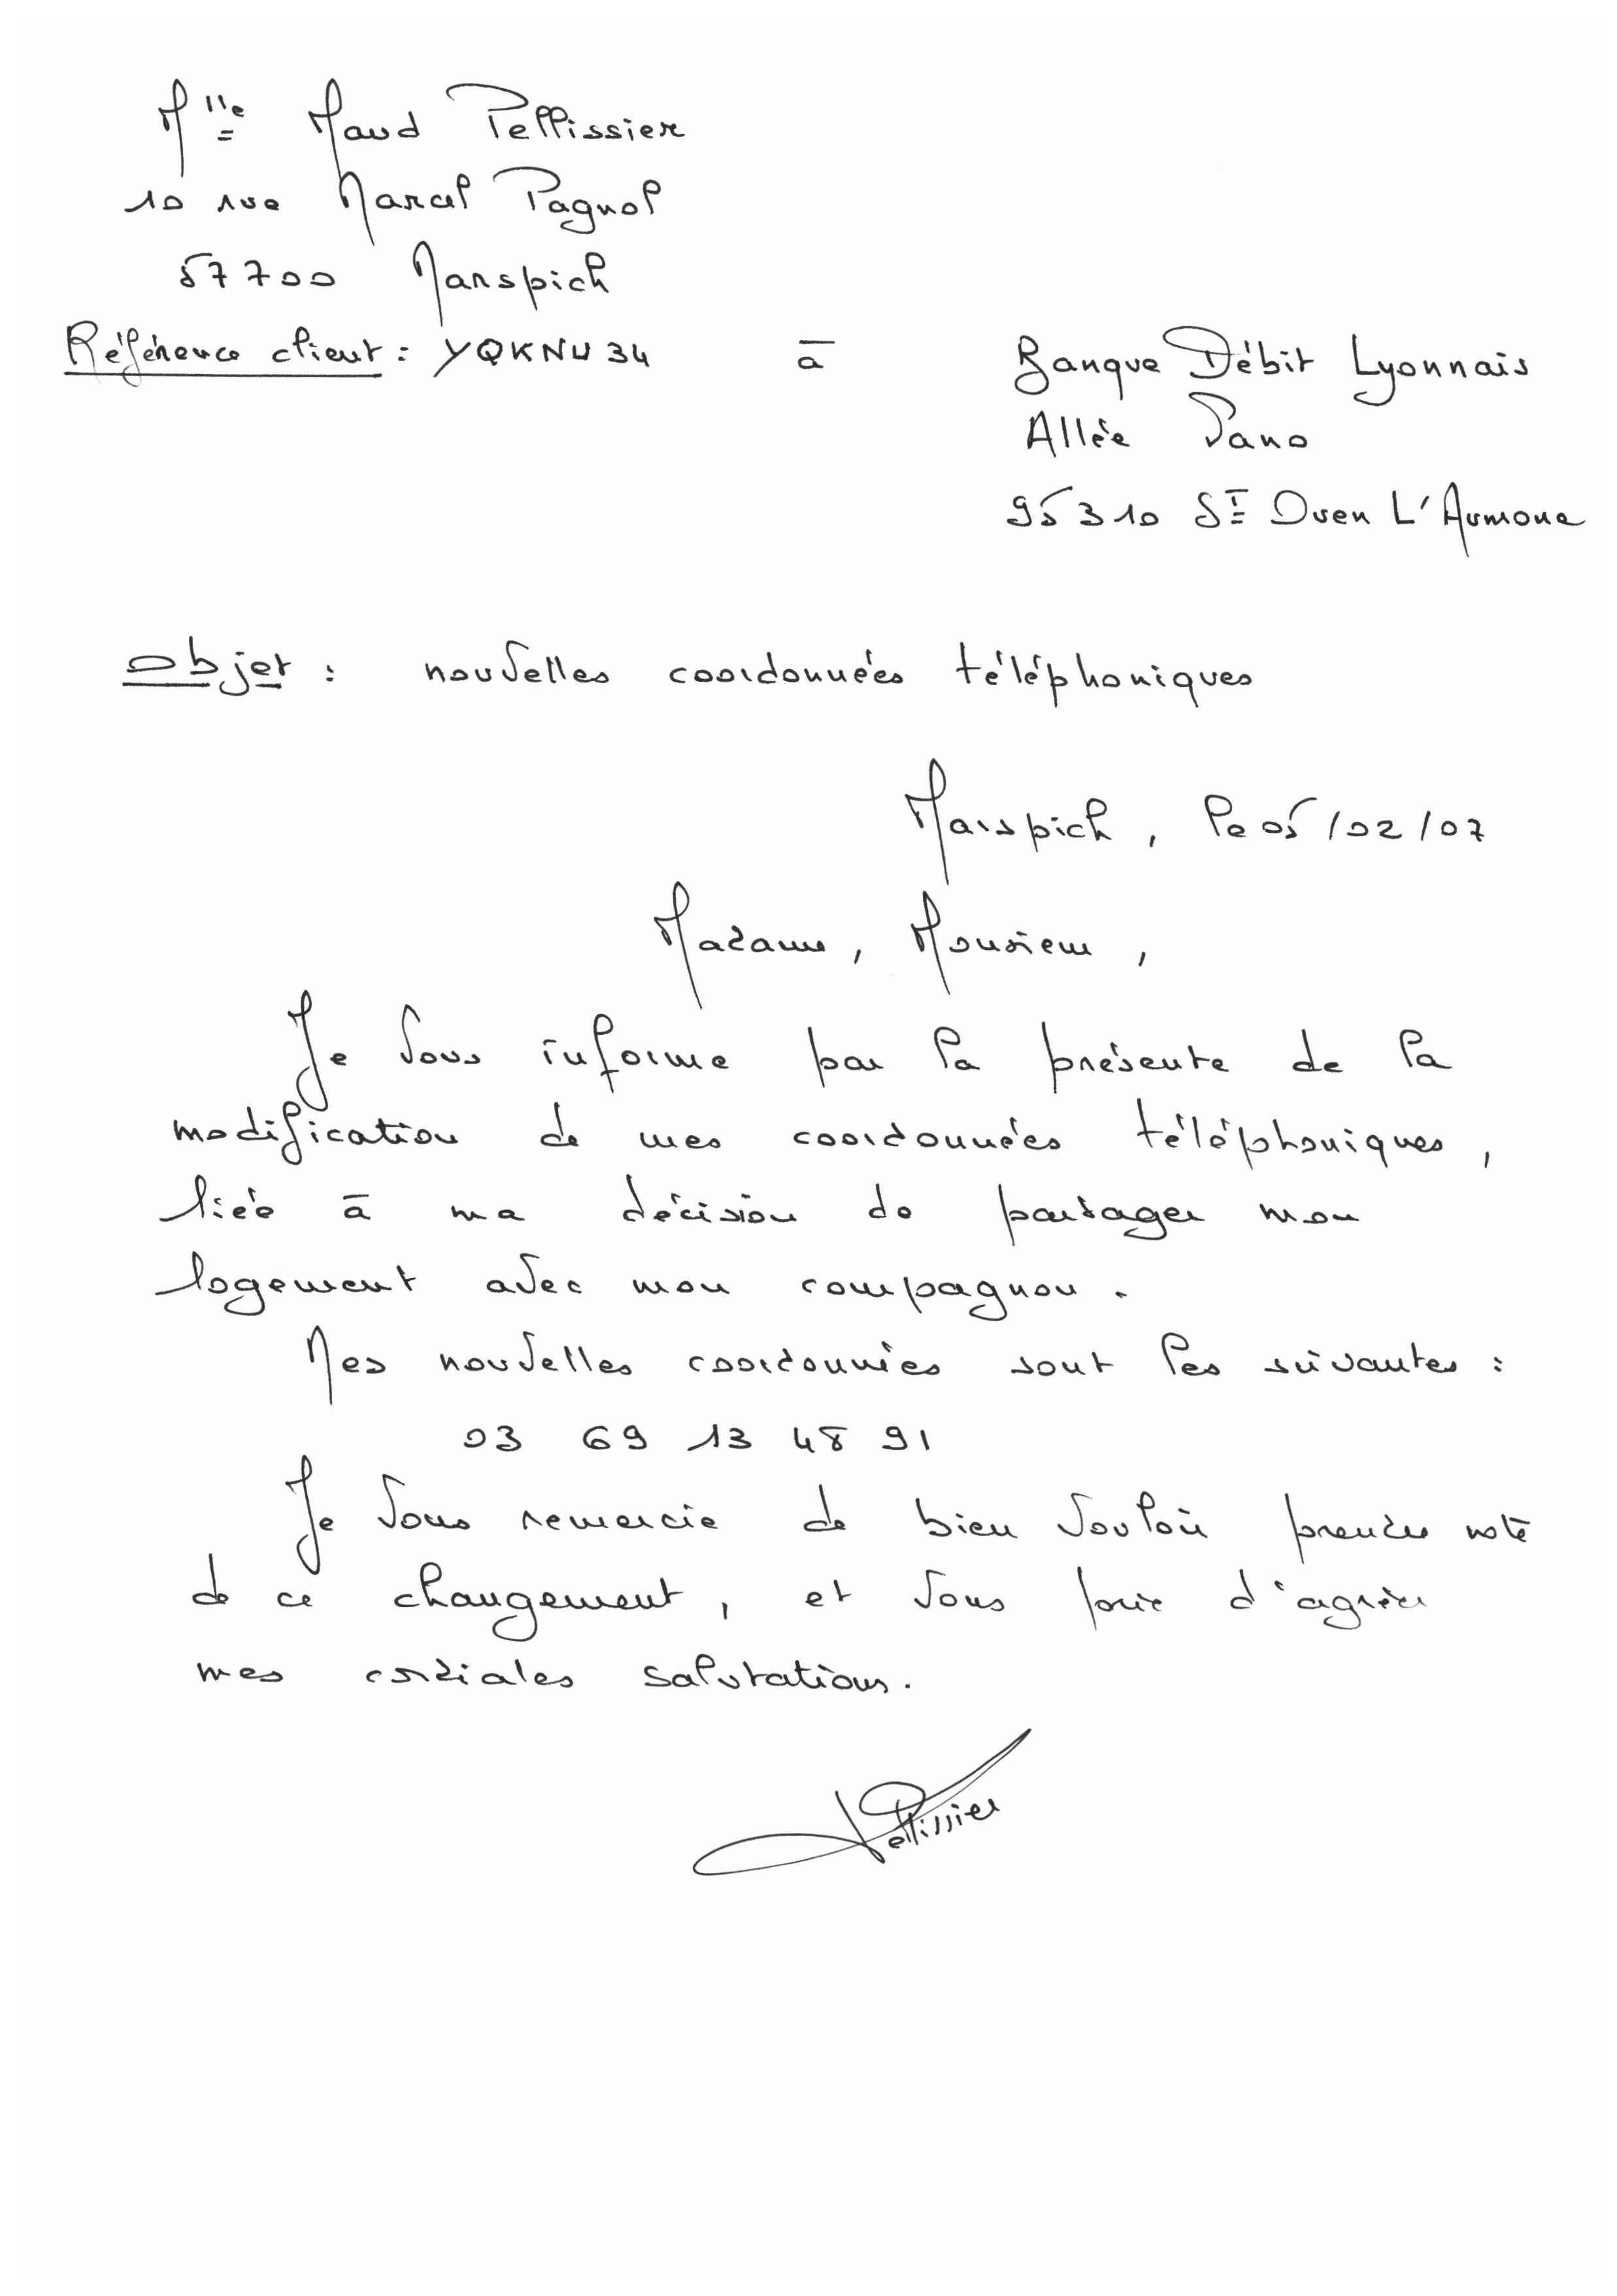 Mlle Maud Pellissier
10 rue Marcel Pagnol
57700 Marspich
Référence client : YQKNU34 à
Banque Débit Lyonnais
Allée Pano
95310 St Ouen L'Aumone
Objet : nouvelles coordonnées téléphoniques
Marspich, le 05/02/07
Madame, Monsieur,
Je vous informe par la présente de la
modification de mes coordonnées téléphoniques,
liée à ma décision de partager mon
logement avec mon compagnon.
Mes nouvelles coordonnées sont les suivantes :
03 69 13 48 91
Je vous remercie de bien vouloir prendre note
de ce changement, et vous prie d'agréer
mes cordiales salutations.
Pellissier